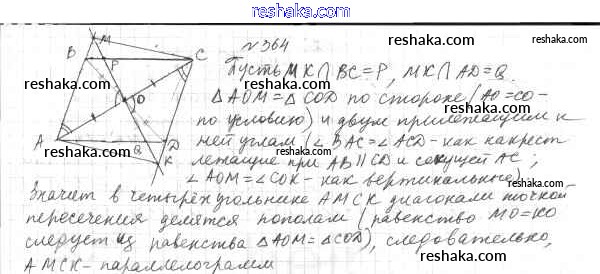 reshaka.com
№364
Пусть MK∩BC=P, MK∩AD=Q.
reshaka.com
△AOM=△COD по стороне (AO=CO-
по условию) и двум прилежащим к
ней углам (∠BAC=∠ACD-как накрест
лежащие при AB∥CD и секущей AC;
∠AOM=∠COK-как вертикальные).
Значит в четырёхугольнике AMCK диагонали точкой
пересечения делятся пополам (равенство MO=KO
следует из равенства △AOM=△COD), следовательно,
AMCK-параллелограмм
M
B
P
C
O
A
Q
D
K
reshaka.com
reshaka.com
reshaka.com
reshaka.com
reshaka.com
reshaka.com
reshaka.com
reshaka.com